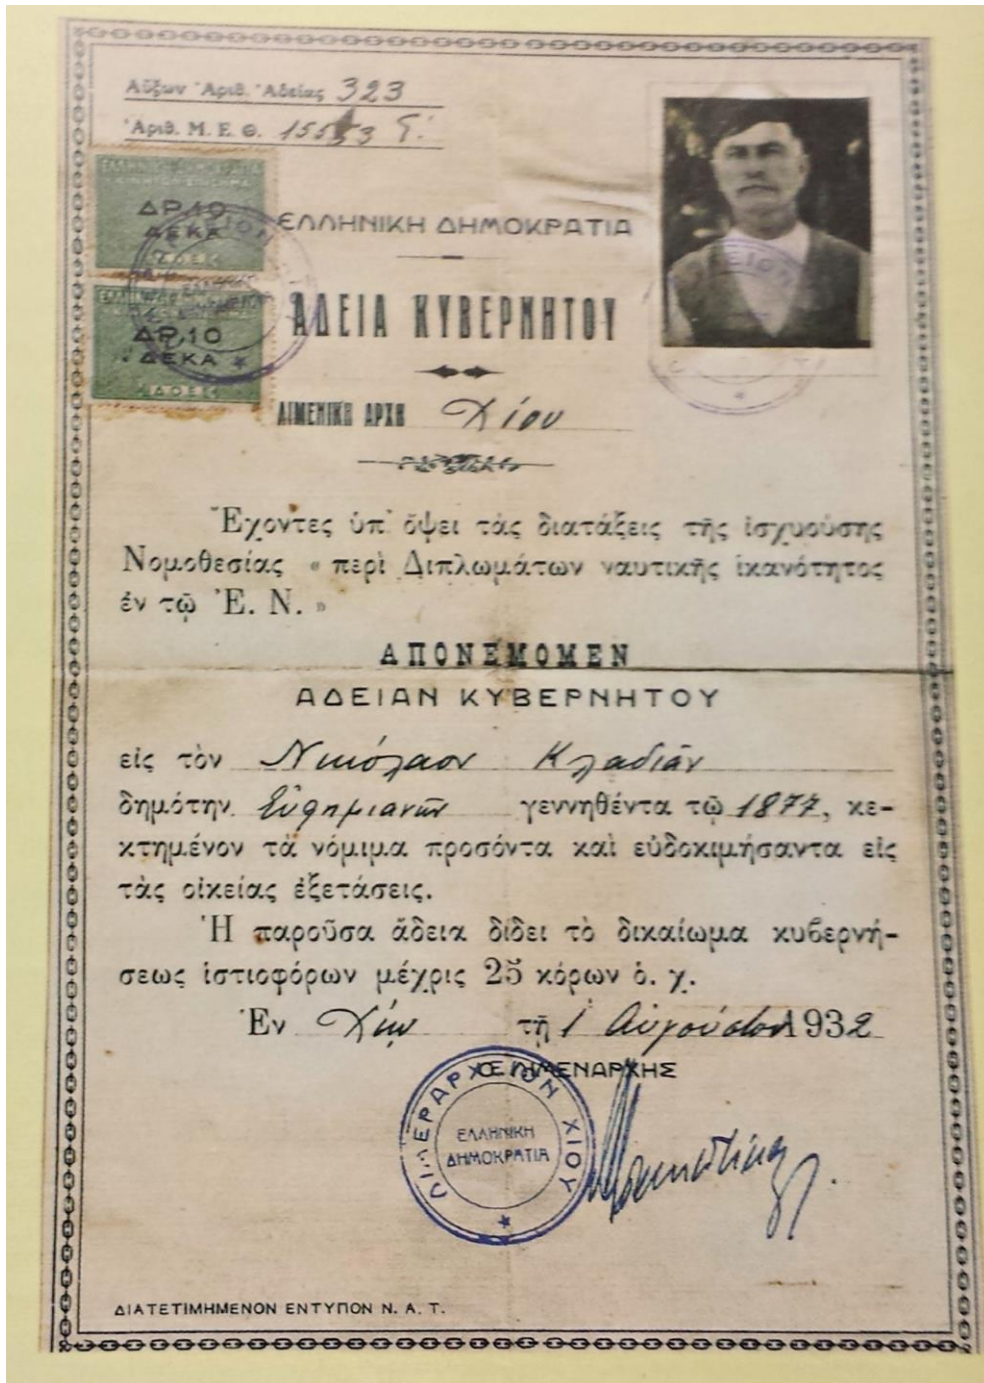 Αὔξων Ἀριθ. Ἀδείας 323
Ἀριθ. Μ. Ε. Θ.
ΔΡ.10
ΔΕΚΑ
ΔΡ.10
ΔΕΚΑ
ΕΛΛΗΝΙΚΗ ΔΗΜΟΚΡΑΤΙΑ
ΑΔΕΙΑ ΚΥΒΕΡΝΗΤΟΥ
ΛΙΜΕΝΙΚΗ ΑΡΧΗ Χίου
Ἔχοντες ὑπ' ὄψει τὰς διατάξεις τῆς ἰσχυούσης
Νομοθεσίας « περὶ Διπλωμάτων ναυτικῆς ἱκανότητος
ἐν τῷ Ἐ. Ν. »
ΑΠΟΝΕΜΟΜΕΝ
ΑΔΕΙΑΝ ΚΥΒΕΡΝΗΤΟΥ
εἰς τὸν Νικόλαον Κλαδιᾶν
δημότην Εὐθημιανῶν γεννηθέντα τῷ 1877, κε-
κτημένον τὰ νόμιμα προσόντα καὶ εὐδοκιμήσαντα εἰς
τὰς οἰκείας ἐξετάσεις.
Ἡ παροῦσα ἄδεια δίδει τὸ δικαίωμα κυβερνή-
σεως ἱστιοφόρων μέχρις 25 κόρων ὁ. χ.
Ἐν Χίῳ τῇ 1 Αὐγούστου 1932
Ο ΛΙΜΕΝΑΡΧΗΣ
ΛΙΜΕΝΑΡΧΕΙΟΝ ΧΙΟΥ
ΕΛΛΗΝΙΚΗ
ΔΗΜΟΚΡΑΤΙΑ
ΔΙΑΤΕΤΙΜΗΜΕΝΟΝ ΕΝΤΥΠΟΝ Ν. Α. Τ.